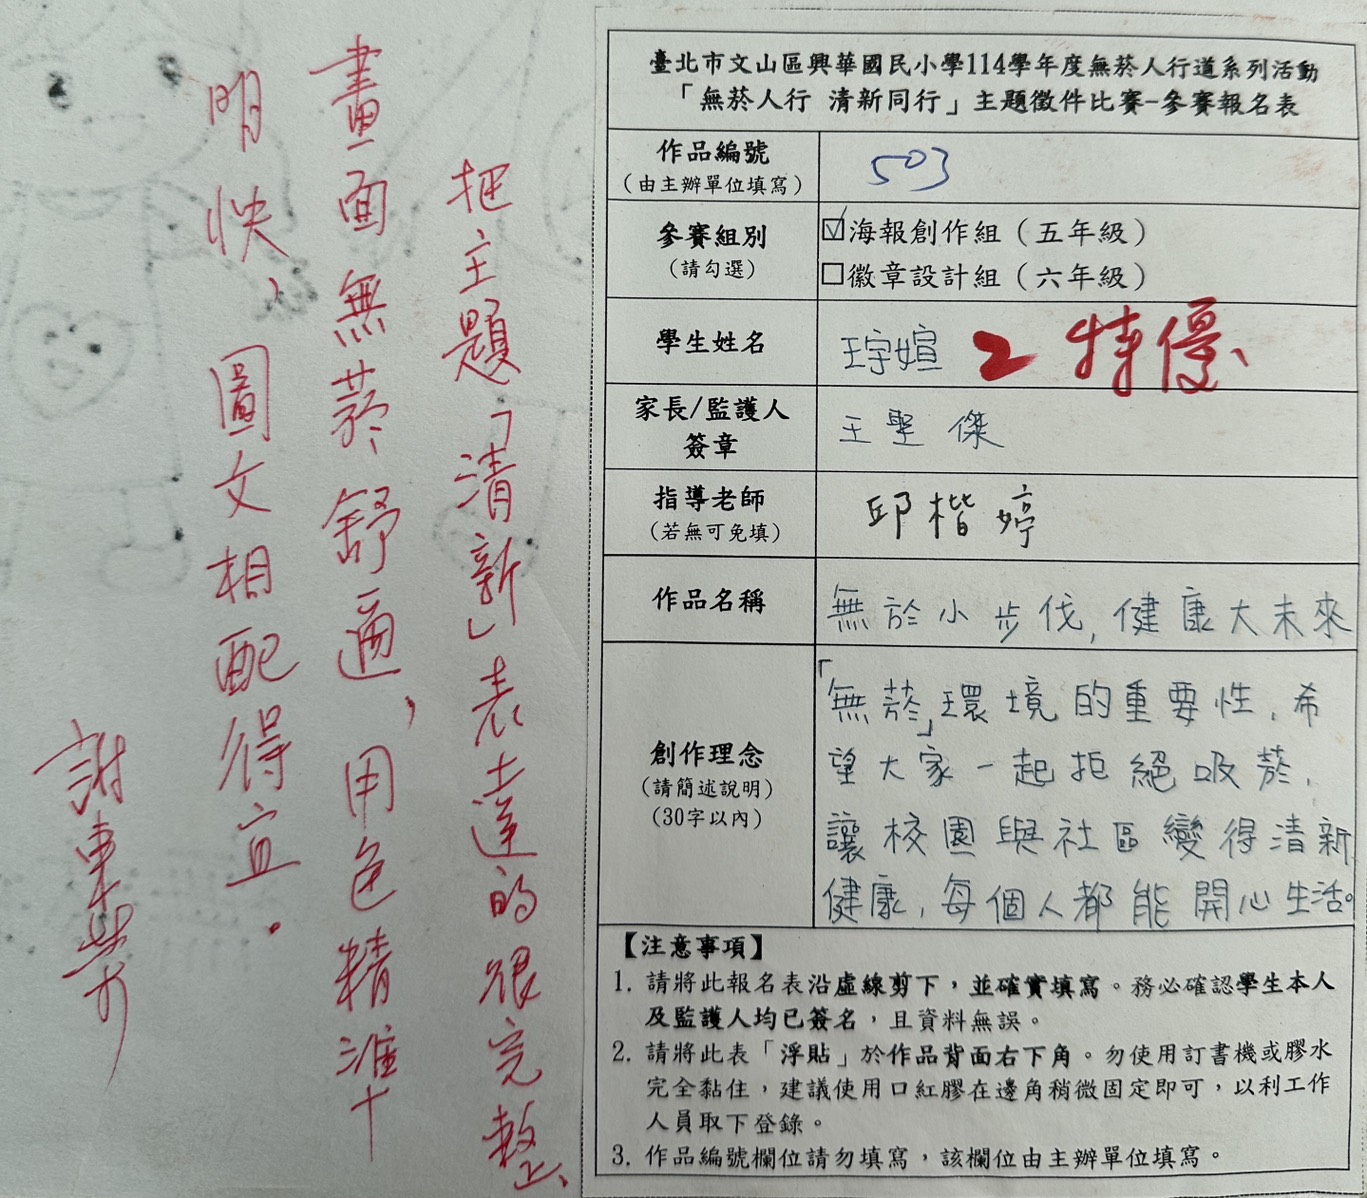 臺北市文山區興華國民小學114學年度無菸人行道系列活動
「無菸人行 清新同行」主題徵件比賽-參賽報名表
作品編號
（由主辦單位填寫）
503
參賽組別
（請勾選）
☑海報創作組（五年級）
☐徽章設計組（六年級）
學生姓名
王宇媗
2 特優、
家長/監護人
簽章
王聖傑
指導老師
（若無可免填）
邱楷婷
作品名稱
無於小步伐,健康大未來
創作理念
（請簡述說明）
（30字以內）
「無菸」環境的重要性,希
望大家一起拒絕吸菸,
讓校園與社區變得清新
健康,每個人都能開心生活。
【注意事項】
1. 請將此報名表沿虛線剪下，並確實填寫。務必確認學生本人
及監護人均已簽名，且資料無誤。
2. 請將此表「浮貼」於作品背面右下角。勿使用訂書機或膠水
完全黏住，建議使用口紅膠在邊角稍微固定即可，以利工作
人員取下登錄。
3. 作品編號欄位請勿填寫，該欄位由主辦單位填寫。
把主題「清新」表達的很完整、
畫面無菸舒適,用色精準
明快、圖文相配得宜.
謝東